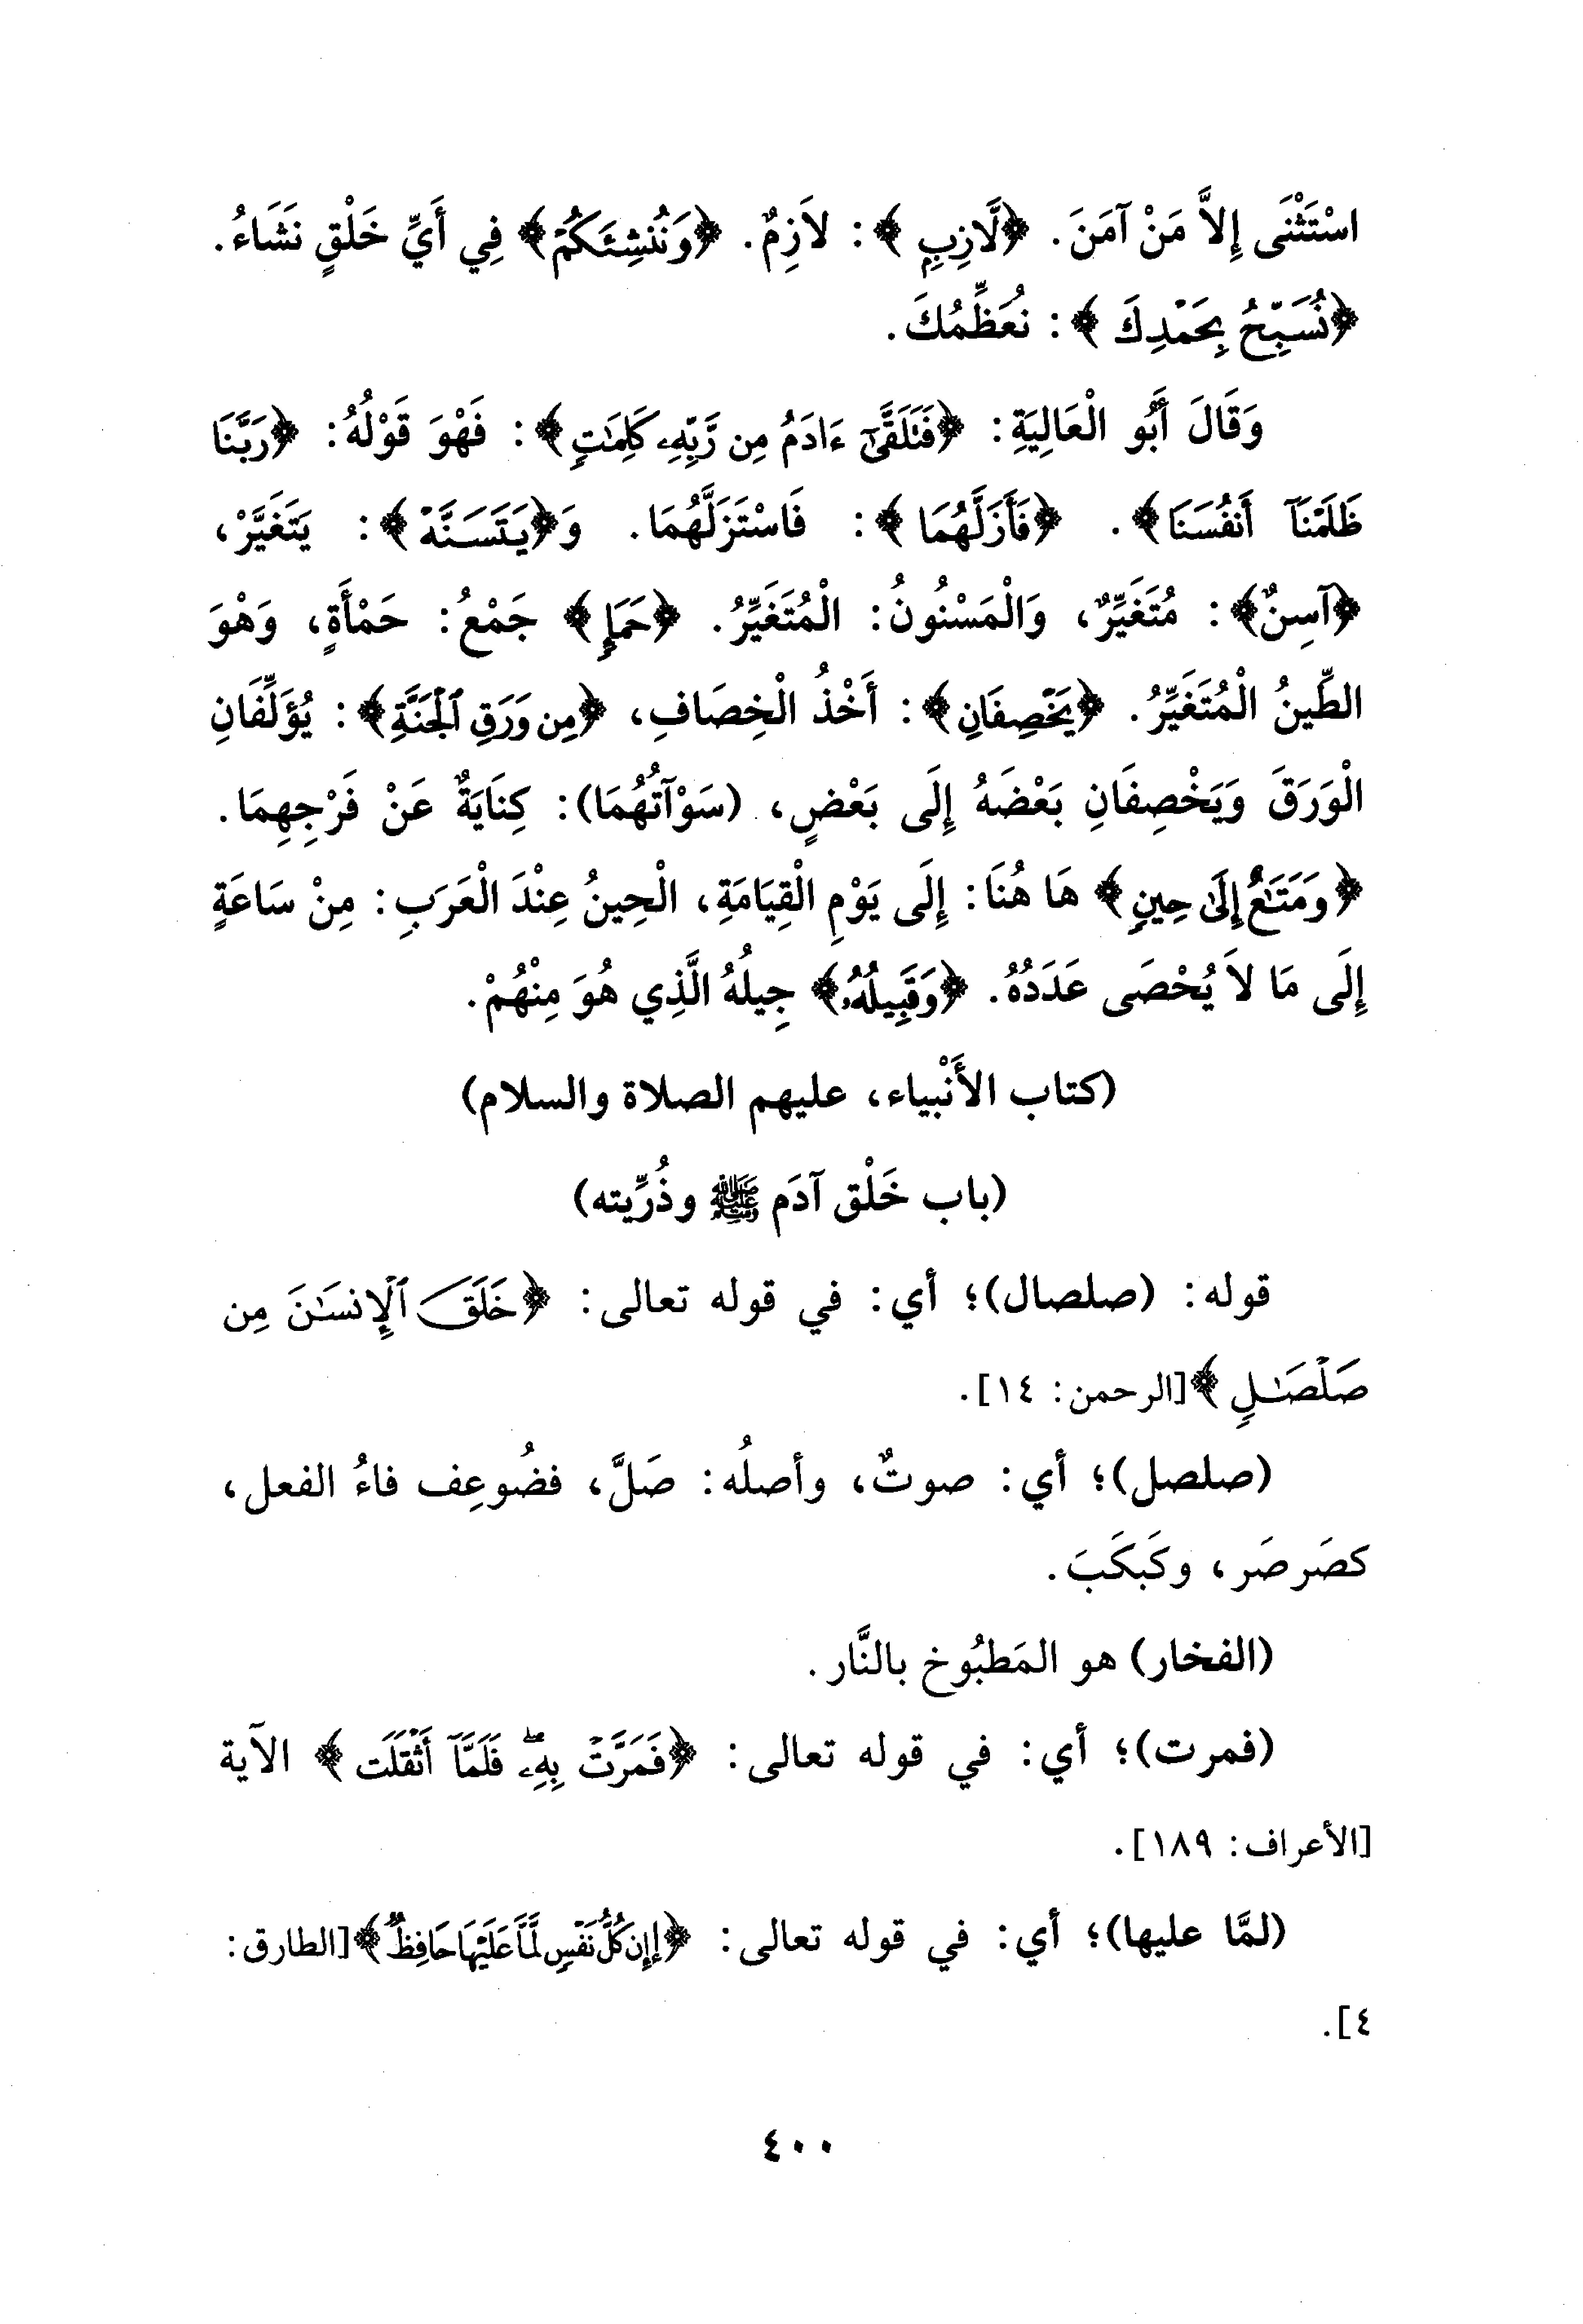 اسْتَثْنَى إِلاَّ مَنْ آمَنَ. ﴿لَّازِبٍ﴾: لاَزِمٌ. ﴿وَنُنشِئَكُمْ﴾ فِي أَيِّ خَلْقٍ نَشَاءُ.
﴿نُسَبِّحُ بِحَمْدِكَ﴾: نُعَظِّمُكَ.
وَقَالَ أَبُو الْعَالِيَةِ: ﴿فَتَلَقَّىٰٓ ءَادَمُ مِن رَّبِّهِۦ كَلِمَٰتٍ﴾: فَهْوَ قَوْلُهُ: ﴿رَبَّنَا
ظَلَمْنَآ أَنفُسَنَا﴾. ﴿فَأَزَلَّهُمَا﴾: فَاسْتَزَلَّهُمَا. وَ﴿يَتَسَنَّهْ﴾: يَتَغَيَّرْ،
﴿آسِنٌ﴾: مُتَغَيِّرٌ، وَالْمَسْنُونُ: الْمُتَغَيِّرُ. ﴿حَمَإٍ﴾ جَمْعُ: حَمْأَةٍ، وَهْوَ
الطِّينُ الْمُتَغَيِّرُ. ﴿يَخْصِفَانِ﴾: أَخْذُ الْخِصَافِ، ﴿مِن وَرَقِ ٱلْجَنَّةِ﴾: يُؤَلِّفَانِ
الْوَرَقَ وَيَخْصِفَانِ بَعْضَهُ إِلَى بَعْضٍ، (سَوْآتُهُمَا): كِنَايَةٌ عَنْ فَرْجِهِمَا.
﴿وَمَتَٰعٌ إِلَىٰ حِينٍ﴾ هَا هُنَا: إِلَى يَوْمِ الْقِيَامَةِ، الْحِينُ عِنْدَ الْعَرَبِ: مِنْ سَاعَةٍ
إِلَى مَا لاَ يُحْصَى عَدَدُهُ. ﴿وَقَبِيلُهُۥ﴾ جِيلُهُ الَّذِي هُوَ مِنْهُمْ.
(كتاب الأَنْبياء، عليهم الصلاة والسلام)
(باب خَلْق آدَم ﷺ وذُرِّيته)
قوله: (صلصال)؛ أي: في قوله تعالى: ﴿خَلَقَ ٱلْإِنسَٰنَ مِن
صَلْصَٰلٍ﴾[الرحمن: ١٤].
(صلصل)؛ أي: صوتٌ، وأصلُه: صَلَّ، فضُوعِف فاءُ الفعل،
كصَرصَر، وكَبكَبَ.
(الفخار) هو المَطبُوخ بالنَّار.
(فمرت)؛ أي: في قوله تعالى: ﴿فَمَرَّتْ بِهِۦۖ فَلَمَّآ أَثْقَلَت﴾ الآية
[الأعراف: ١٨٩].
(لمَّا عليها)؛ أي: في قوله تعالى: ﴿إِن كُلُّ نَفْسٍ لَّمَّا عَلَيْهَا حَافِظٌ﴾[الطارق:
٤].
٤٠٠